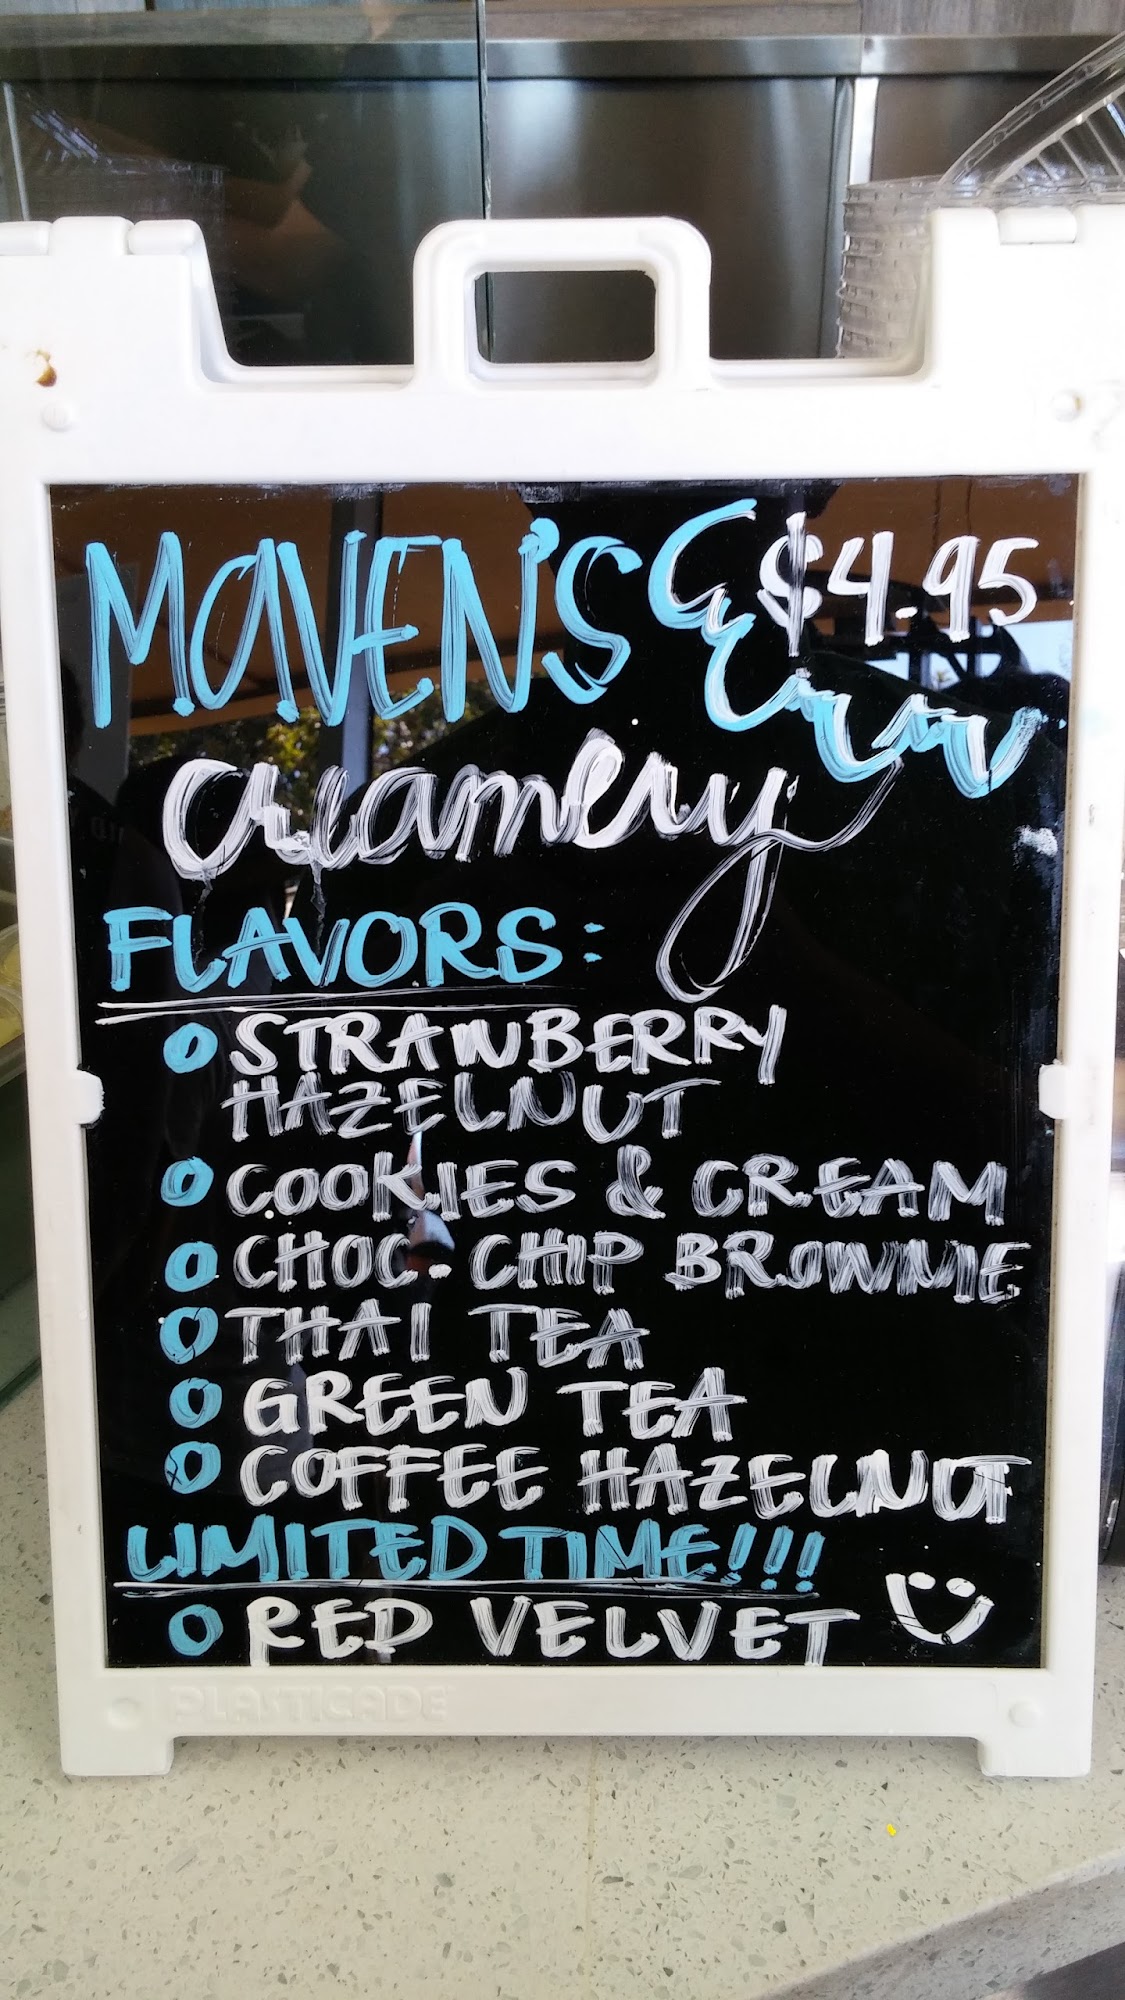 MAVEN'S $4.95
Creamery
FLAVORS:
STRAWBERRY
HAZELNUT
COOKIES & CREAM
CHOC. CHIP BROWNIE
THAI TEA
GREEN TEA
COFFEE HAZELNUT
LIMITED TIME!!!
RED VELVET
PLASTICADE